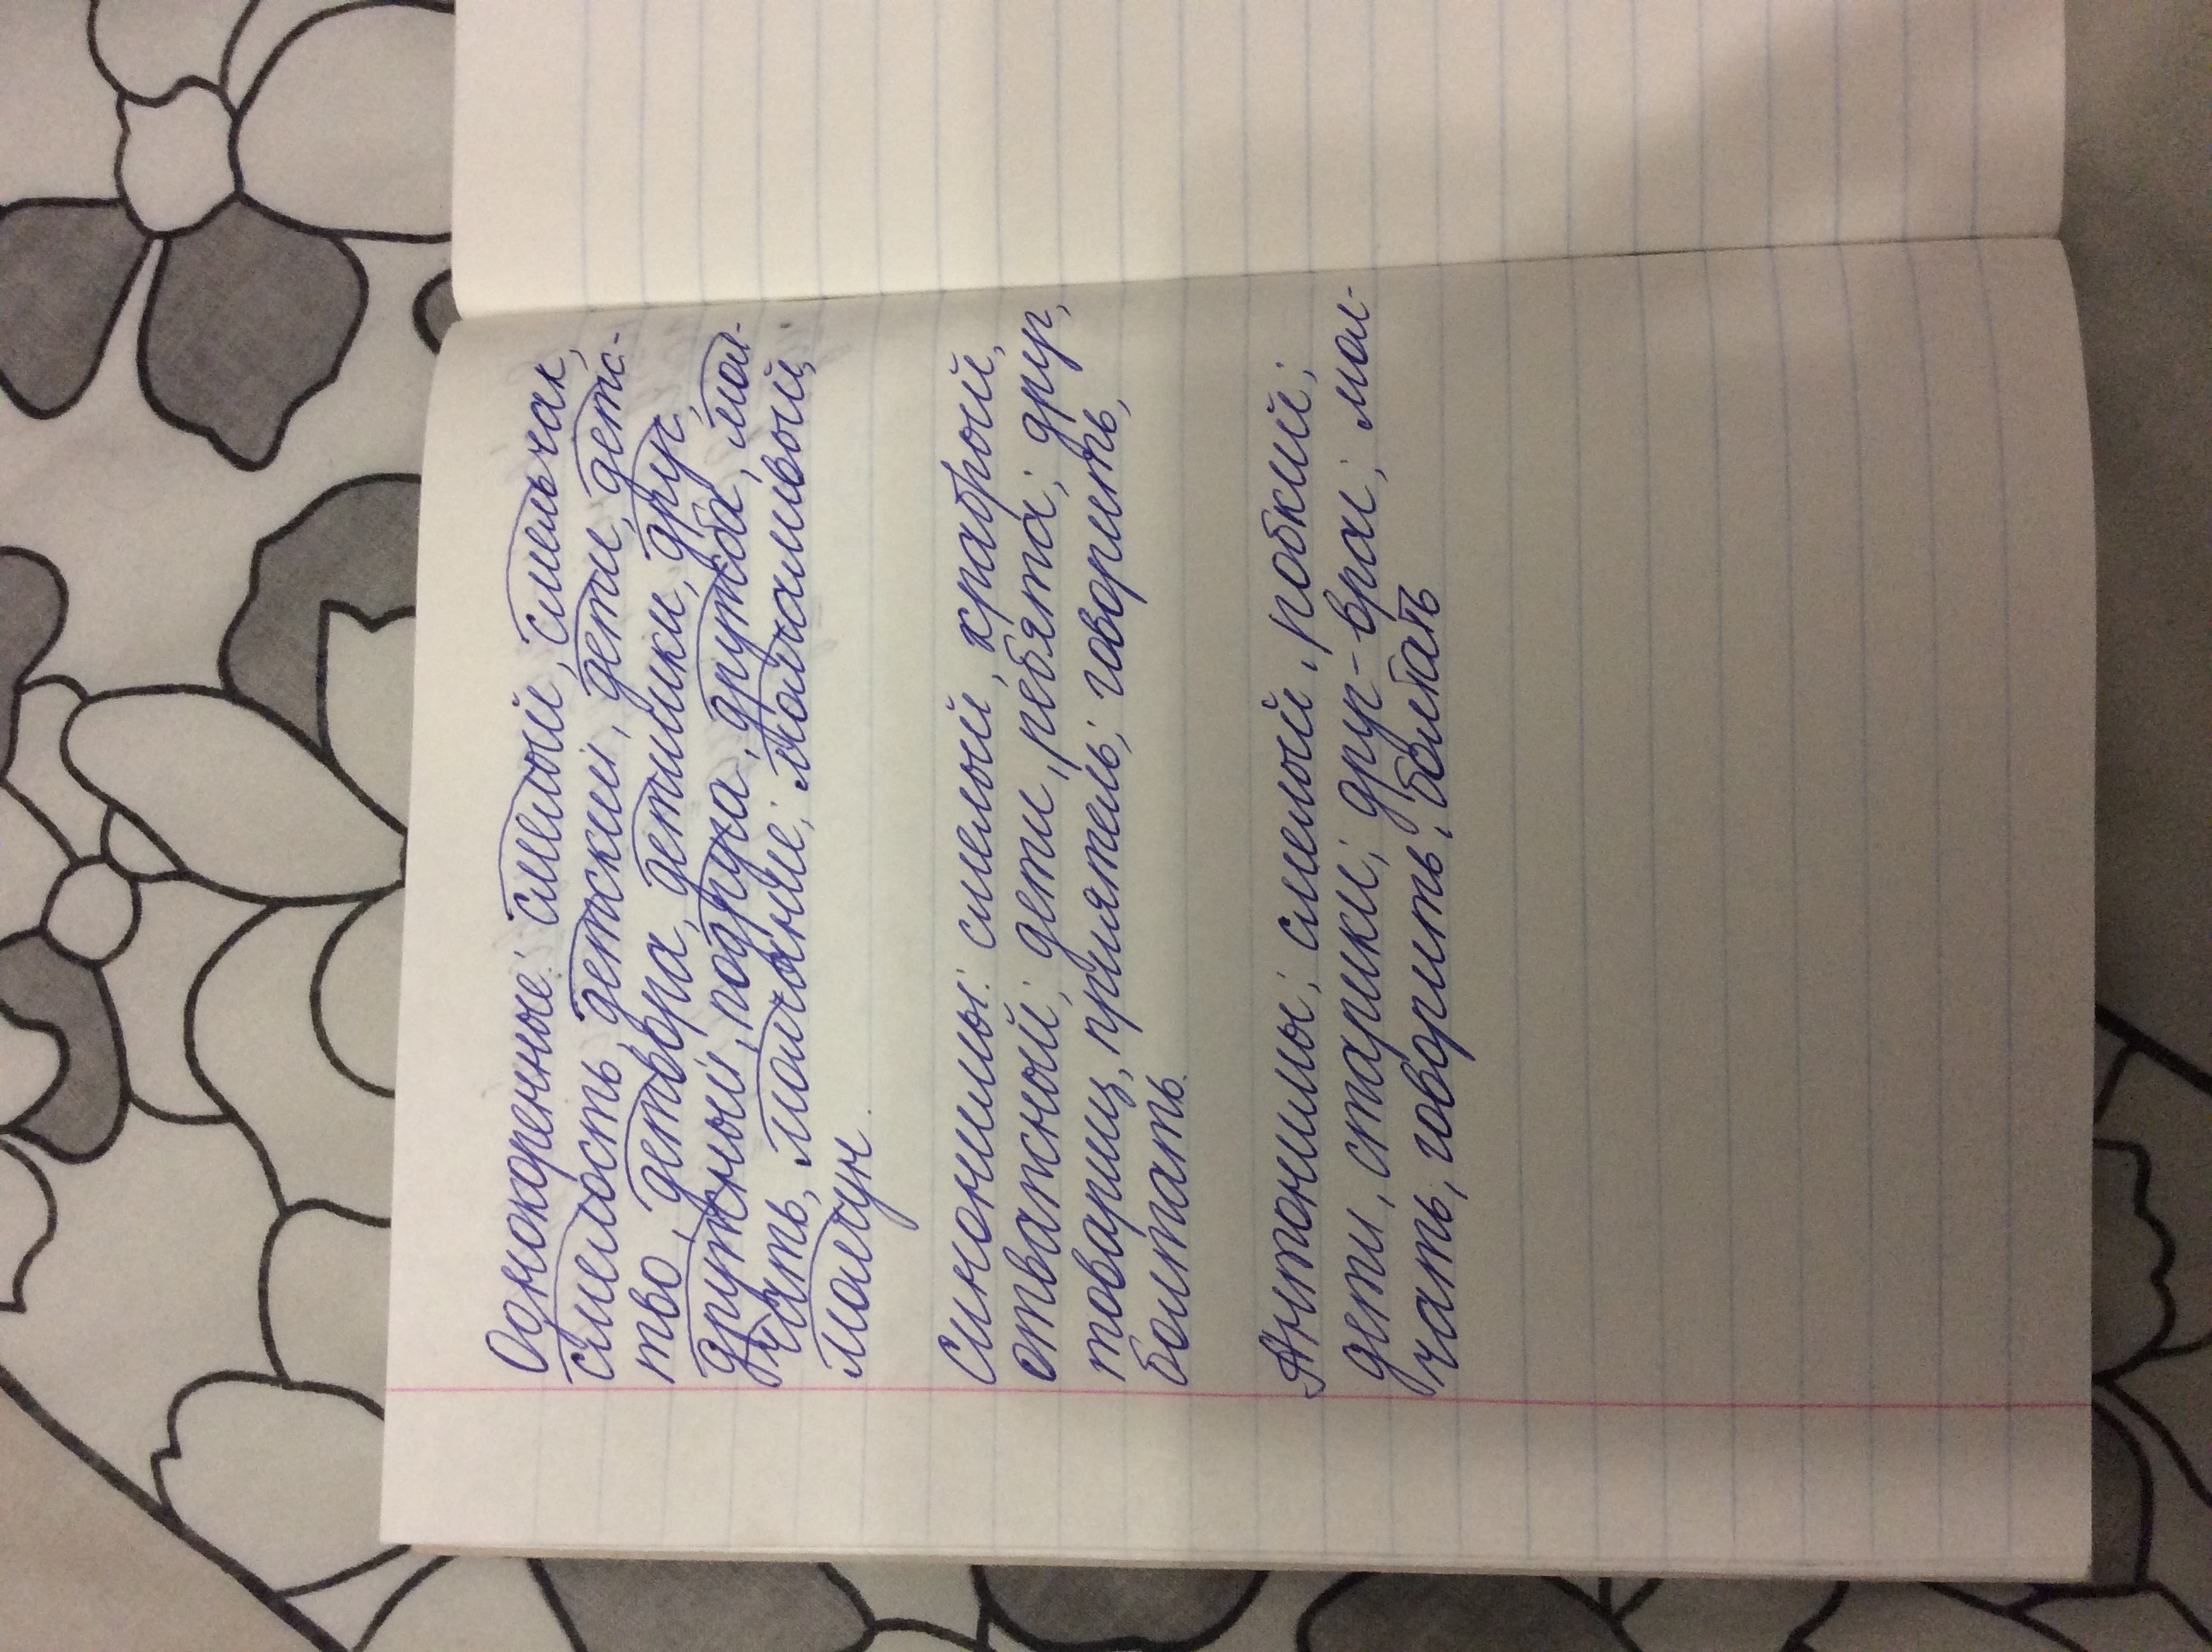 Однокоренные: смелый, смельчак,
смелость, детский, дети, детс-
тво, детвора, детишки, друг,
дружный, подруга, дружба, мол-
чать, молчание, молчаливый,
молчун.
Синонимы: смелый, храбрый,
отважный; дети, ребята; друг,
товарищ, приятель; говорить,
болтать.
Антонимы: смелый, робкий;
дети, старики; друг-враг; мол-
чать, говорить, болтать